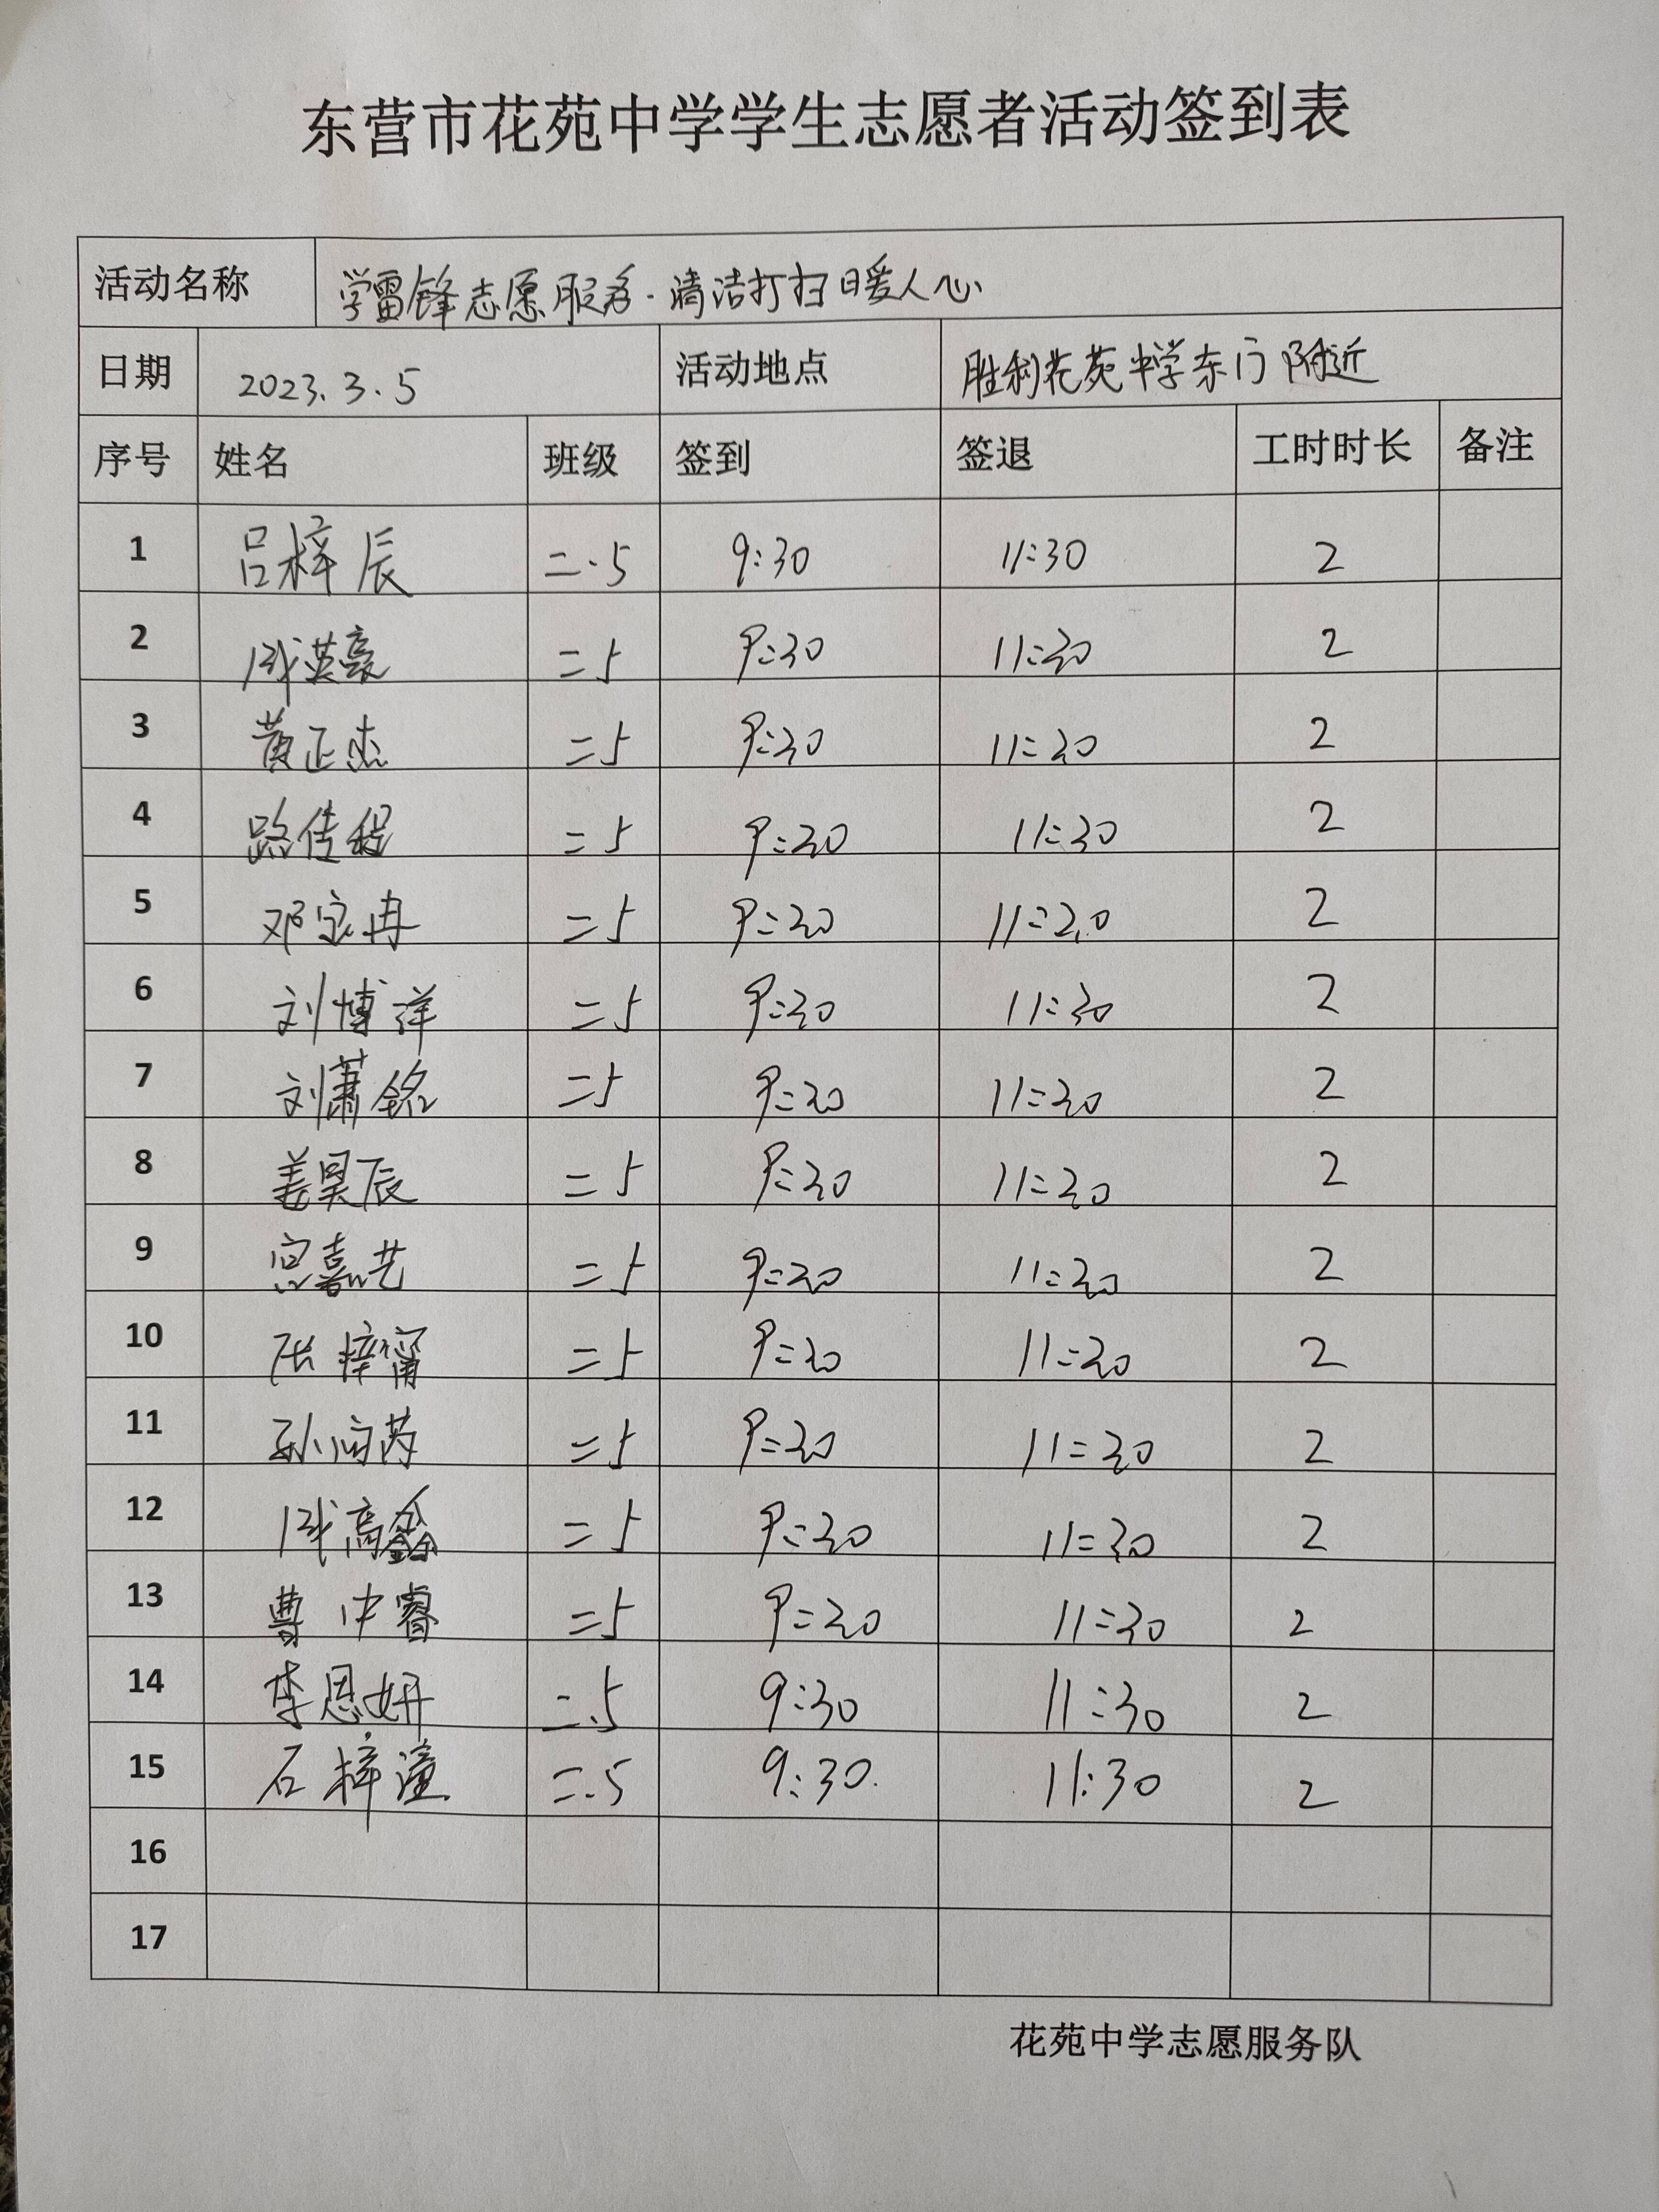 东营市花苑中学学生志愿者活动签到表
活动名称 学雷锋志愿服务·清洁打扫暖人心
日期 2023.3.5 活动地点 胜利花苑中学东门附近
序号 姓名 班级 签到 签退 工时时长 备注
1 吕梓辰 二.5 9:30 11:30 2
2 英豪 二5 9:30 11:30 2
3 黄正杰 二5 9:30 11:30 2
4 路传程 二5 9:30 11:30 2
5 邓宜冉 二5 9:30 11:30 2
6 刘博洋 二5 9:30 11:30 2
7 刘萧铭 二5 9:30 11:30 2
8 姜昊辰 二5 9:30 11:30 2
9 宫嘉艺 二5 9:30 11:30 2
10 张梓甯 二5 9:30 11:30 2
11 孙 芮 二5 9:30 11:30 2
12 高鑫 二5 9:30 11:30 2
13 曹中睿 二5 9:30 11:30 2
14 李恩妍 二.5 9:30 11:30 2
15 石梓潼 二.5 9:30 11:30 2
16
17
花苑中学志愿服务队